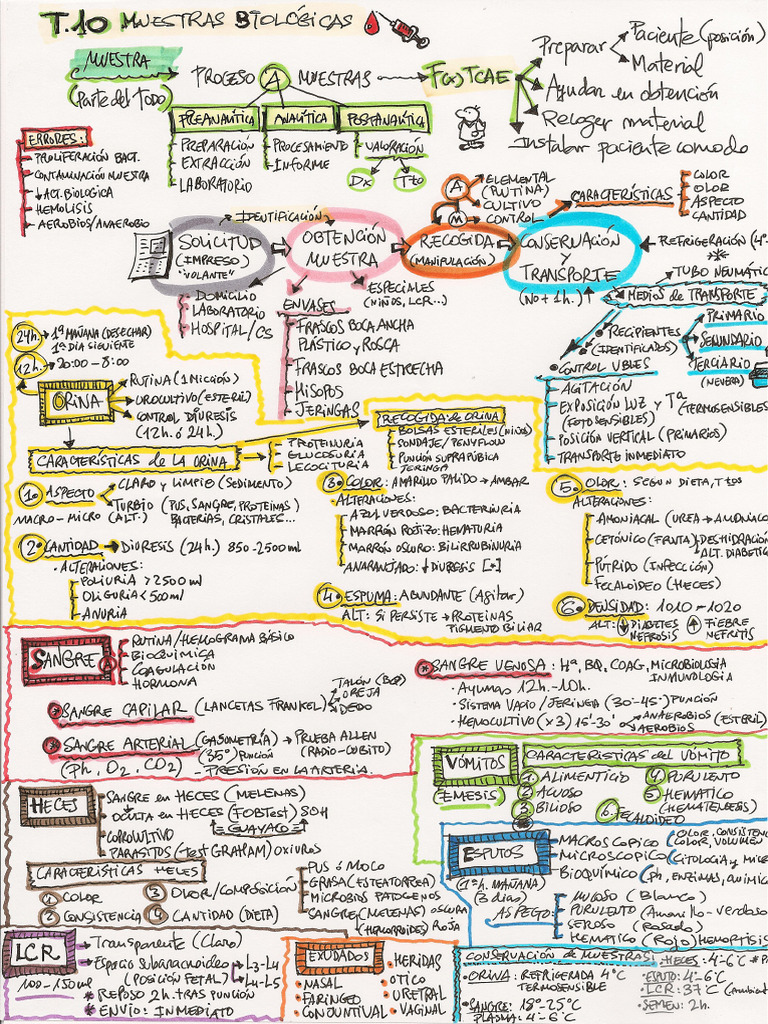 T.10 MUESTRAS BIOLÓGICAS
MUESTRA
(Parte del Todo)
PROCESO A MUESTRAS
F(x) TCAE
Preparar
Paciente (posición)
Material
Ayudar en obtención
Recoger material
Instalar paciente comodo
PREANALÍTICA
PREPARACIÓN
EXTRACCIÓN
LABORATORIO
ANALÍTICA
PROCESAMIENTO
INFORME
POSTANALÍTICA
VALORACIÓN
Dx
Tto
ERRORES:
PROLIFERACIÓN BACT.
CONTAMINACIÓN MUESTRA
↓ACT. BIOLOGICA
HEMOLISIS
AEROBIOS/ANAEROBIO
IDENTIFICACIÓN
SOLICITUD
(IMPRESO)
"VOLANTE"
DOMICILIO
LABORATORIO
HOSPITAL/CS
OBTENCIÓN
MUESTRA
ESPECIALES
(NIÑOS, LCR...)
ENVASES
FRASCOS BOCA ANCHA
PLÁSTICO y ROSCA
FRASCOS BOCA ESTRECHA
HISOPOS
JERINGAS
RECOGIDA
(MANIPULACIÓN)
A
M
ELEMENTAL
(RUTINA)
CULTIVO
CONTROL
CONSERVACIÓN
Y
TRANSPORTE
(No + 1h.)
CARACTERÍSTICAS
COLOR
OLOR
ASPECTO
CANTIDAD
REFRIGERACIÓN (4º-
TUBO NEUMÁTI
MEDIOS de TRANSPORTE
RECIPIENTES
(IDENTIFICADOS)
PRIMARIO
SECUNDARIO
TERCIARIO
(NEVERA)
CONTROL VBLES
AGITACIÓN
EXPOSICIÓN LUZ Y Tª
(FOTOSENSIBLES)
(TERMOSENSIBLES)
POSICIÓN VERTICAL (PRIMARIOS)
TRANSPORTE INMEDIATO
24h. → 1ª MAÑANA (DESECHAR)
1ª DIA SIGUIENTE
12h. → 20:00 - 8:00
ORINA
RUTINA (1 MICCIÓN)
UROCULTIVO (ESTERIL)
CONTROL DIURESIS
(12h. ó 24h.)
CARACTERÍSTICAS de LA ORINA
PROTEINURIA
GLUCOSURIA
LEUCOCITURIA
RECOGIDA de ORINA
BOLSAS ESTERILES (NIÑOS)
SONDAJE/PENYFLOW
PUNCIÓN SUPRAPÚBICA
JERINGA
1º ASPECTO
CLARO y LIMPIO (SEDIMENTO)
TURBIO (PUS, SANGRE, PROTEINAS)
BACTERIAS, CRISTALES...
MACRO - MICRO (ALT.)
2º CANTIDAD → DIURESIS (24h.) 850-2500ml
ALTERACIONES:
POLIURIA > 2500 ml
OLIGURIA < 500ml
ANURIA
3º COLOR: AMARILLO PALIDO → AMBAR
ALTERACIONES:
AZUL VERDOSO: BACTERIURIA
MARRÓN ROJIZO: HEMATURIA
MARRÓN OSCURO: BILIRRUBINURIA
ANARANJADO: ↓DIURESIS [+]
4º ESPUMA: ABUNDANTE (Agitar)
ALT: SI PERSISTE → PROTEINAS
PIGMENTO BILIAR
5º OLOR: SEGUN DIETA, Ttos
ALTERACIONES:
AMONIACAL (UREA → AMONÍACO
CETÓNICO (FRUTA) DESHIDRACIÓN
ALT. DIABETIC
PÚTRIDO (INFECCIÓN)
FECALOIDEO (HECES)
6º DENSIDAD: 1010 - 1020
ALT: ↓ DIABETES ↑ FIEBRE
NEFROSIS NEFRITIS
SANGRE
A
RUTINA/HEMOGRAMA BÁSICO
BIOQUIMICA
COAGULACION
HORMONA
SANGRE CAPILAR (LANCETAS FRANKEL)
TALÓN (BCP)
OREJA
DEDO
SANGRE ARTERIAL (GASOMETRÍA) → PRUEBA ALLEN
(35º) PUNCIÓN (RADIO-CUBITO)
(Ph, O2, CO2) - PRESIÓN EN LA ARTERIA.
SANGRE VENOSA: Hª, BQ, COAG, MICROBIOLOGIA
INMUNOLOGIA
Ayunas 12h.-10h.
SISTEMA VACIO/JERINGA (30-45º) PUNCIÓN
HEMOCULTIVO (x3) 15'-30'
ANAEROBIOS
AEROBIOS
(ESTERIL)
VÓMITOS
(EMESIS)
CARACTERISTICAS del VÓMITO
1 ALIMENTICIO
2 ACUOSO
3 BILIOSO
4 PURULENTO
5 HEMATICO
(HEMATEMESIS)
6 FECALOIDEO
HECES
SANGRE en HECES (MELENAS)
OCULTA en HECES (FOBTest) SOH
GUAYACO
COPROCULTIVO
PARASITOS (Test GRAHAM) OXIUROS
CARACTERISTICAS HECES
1 COLOR
2 CONSISTENCIA
3 OLOR/COMPOSICIÓN
4 CANTIDAD (DIETA)
PUS ó MOCO
GRASA (ESTEATORREA)
MICROBIOS PATOGENOS
SANGRE (MELENAS) OSCURA
(HEMORROIDES) ROJA
ESPUTOS
(1ª h. MAÑANA)
(3 dias)
MACROSCOPICO (COLOR, CONSISTENC
OLOR, VOLUMEN
MICROSCOPICO (CITOLOGIA y MICR
BIOQUÍMICO (Ph, ENZIMAS, QUIMIC
ASPECTO
MUCOSO (Blanco)
PURULENTO (Amarillo-verdoso
SEROSO (Rosado)
HEMATICO (Rojo) HEMOPTISIS
LCR
100-150ml
Transparente (Claro)
Espacio Subaracnoideo
(POSICIÓN FETAL)
L3-L4
L4-L5
REPOSO 2h. TRAS PUNCIÓN
ENVIO: INMEDIATO
EXUDADOS
NASAL
FARINGEO
CONJUNTIVAL
HERIDAS
OTICO
URETRAL
VAGINAL
CONSERVACIÓN de MUESTRAS:
ORINA: REFRIGERADA 4ºC
TERMOSENSIBLE
SANGRE: 18º-25ºC
PLASMA: 4-6ºC
HECES: 4-6ºC
ESPUTO: 4-6ºC
LCR: 37ºC
SEMEN: 2h.